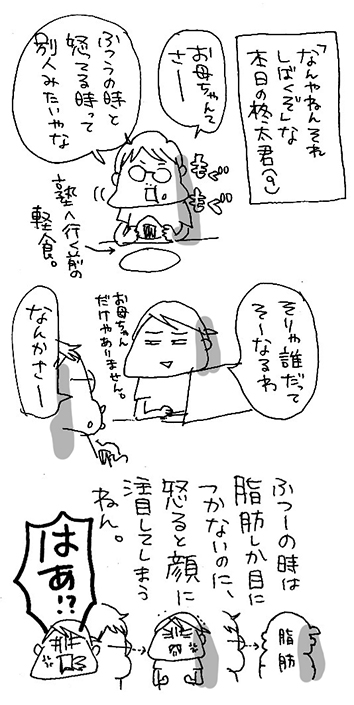 「なんやねんそれ
しばくぞ」な
本日の柊太君(9)
お母ちゃんて
さー
ふつうの時と
怒ってる時って
別人みたいやな
もぐ
もぐ
塾へ行く前の
軽食。
そりゃ誰だって
そーなるわ
お母ちゃん
だけやありません。
なんかさー
ふつーの時は
脂肪しか目に
つかないのに、
怒ると顔に
注目してしまう
ねん。
脂肪
はあ!?